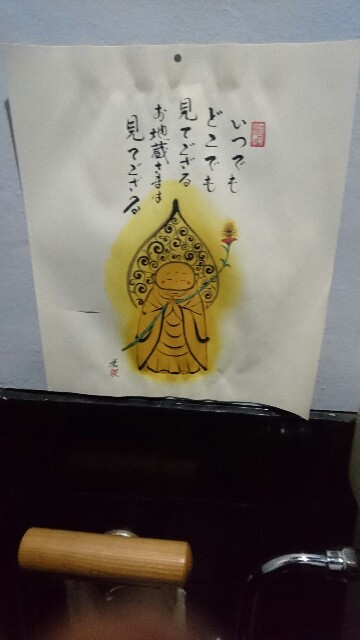 いつでも
どこでも
見てござる
お地蔵さまは
見てござる